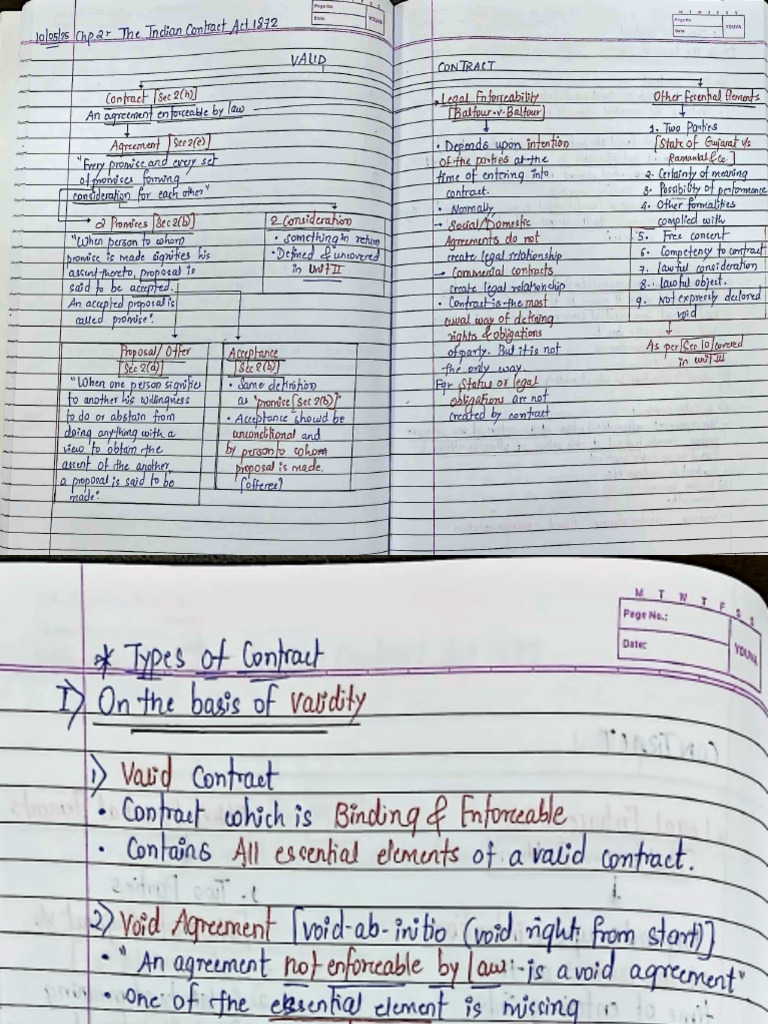 10/05/25 Chp 2:- The Indian Contract Act 1872
Page No.
Date.
YOUVA
VALID
Contract [Sec 2(h)]
An agreement enforceable by law
Agreement [Sec 2(e)]
"Every promise and every set
of promises forming
consideration for each other"
2 Promises [Sec 2(b)]
"When person to whom
promise is made signifies his
assent thereto, proposal is
said to be accepted.
An accepted proposal is
called promise".
2 Consideration
• something in return
• Defined & uncovered
in Unit II
Proposal/Offer
[Sec 2(a)]
"When one person signifies
to another his willingness
to do or abstain from
doing anything with a
view to obtain the
assent of the another,
a proposal is said to be
made".
Acceptance
[Sec 2(b)]
• Same definition
as "promise [Sec 2(b)]"
• Acceptance should be
unconditional and
by person to whom
proposal is made.
(offeree)
M T W T F S S
Page No.
Date
YOUVA
CONTRACT
Legal Enforceability
[Balfour v. Balfour]
• Depends upon intention
of the parties at the
time of entering into
contract.
• Normally
- Social/Domestic
Agreements do not
create legal relationship
- Commercial contracts
create legal relationship
• Contract is the most
usual way of defining
rights & obligations
of party. But it is not
the only way.
For Status or legal
obligations are not
created by contract
Other Essential Elements
1. Two Parties
[State of Gujarat v/s
Ramanlal & Co.]
2. Certainty of meaning
3. Possibility of performance
4. Other formalities
complied with
5. Free consent
6. Competency to contract
7. lawful consideration
8. lawful object.
9. Not expressly declared
void
As per [Sec 10] covered
in unit III
M T W T F S S
Page No.:
Date:
YOUVA
* Types of Contract
I) On the basis of validity
1) Valid Contract
• Contract which is Binding & Enforceable
• Contains All essential elements of a valid contract.
2) Void Agreement [void-ab-initio (void right from start)]
• "An agreement not enforceable by law:- is a void agreement"
• One of the essential element is missing